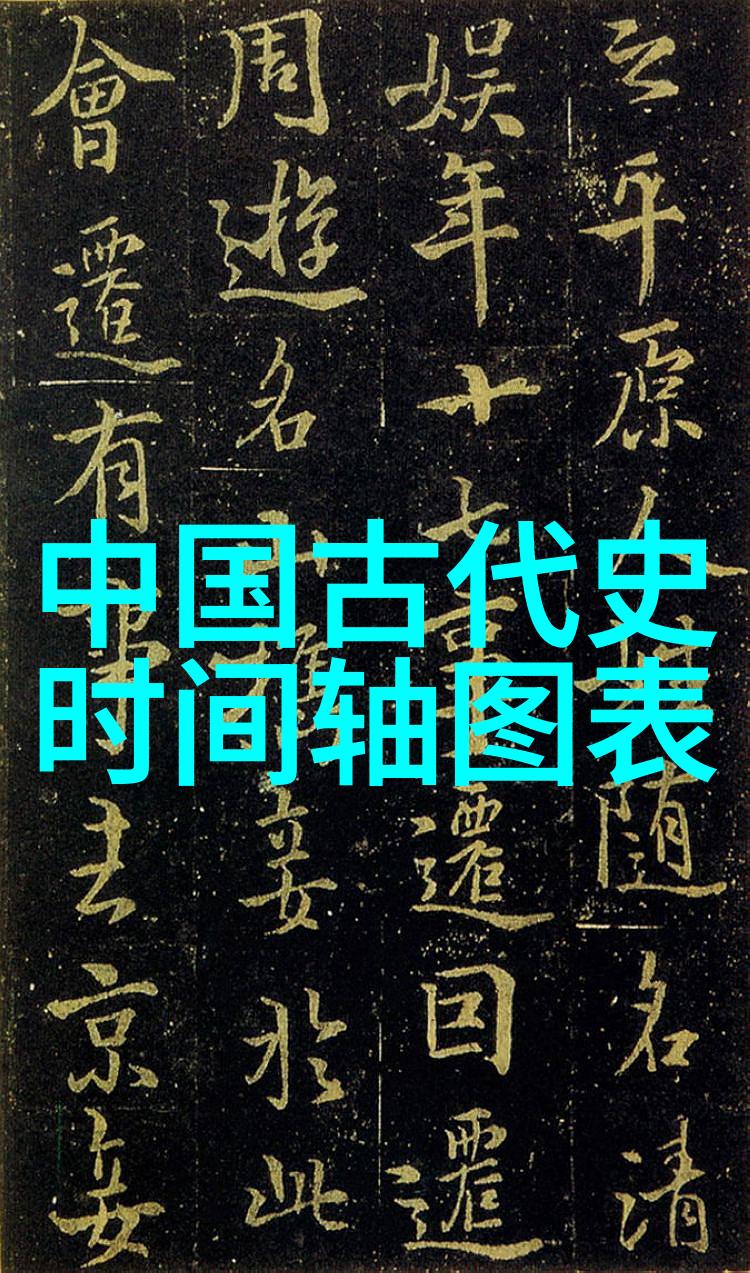 中国古代史
时间轴图表
平原人随名清
娱年十七遷回遷
周遊名山妾於此
會遷有事去京妾